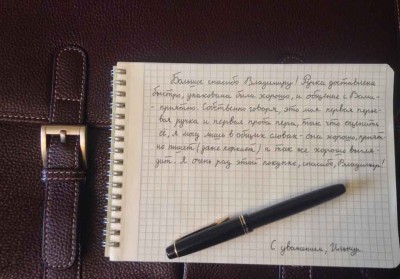 Большое спасибо Владимиру! Ручка доставлена
быстро, упакована была хорошо, и общение с Вами -
- приятно. Собственно говоря, это моя первая перье-
вая ручка и первая проба пера, так что оценить
её, я могу лишь в общих словах - она хороша, прият-
но пишет (даже порхает) и так же хорошо выгля-
дит. Я очень рад этой покупке, спасибо, Владимир!
С уважением,